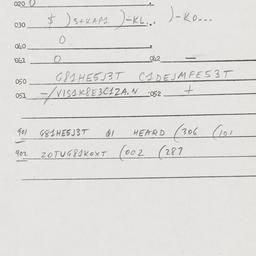 020 0
030 $ )S+KAP1 )-KL.. )-KO...
040 0
041 0 042 —
050 G81HE5J3T C1DEJMFE53T
051 -/V1S1K8E3C1ZA.N 052 +
401 G81HE5J3T 01 HEARD (306 (101
402 20TUG81KOXT (002 (287